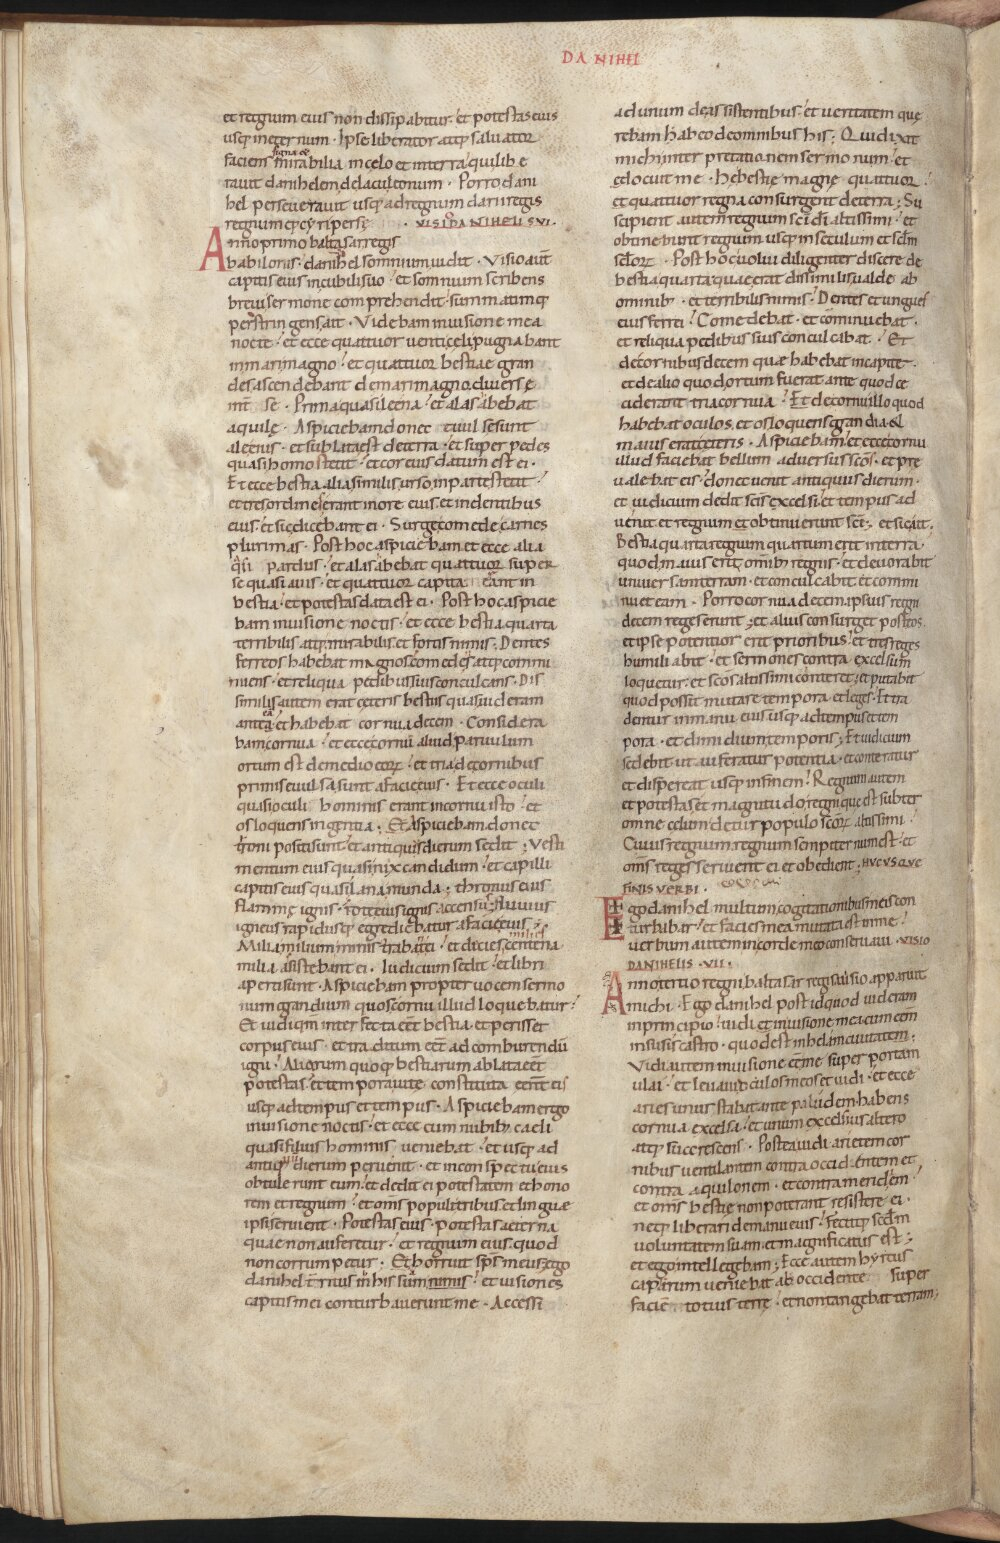 DANIHEL
et regnum eius non dissipabitur· et potestas eius
usq; in eternum· Ipse liberator atq; saluator
faciens signa et mirabilia in celo et in terra· qui libe
rauit danihelem de lacu leonum· Porro dani
hel perseuerauit usq; ad regnum darii regis
regnumq; cyri perse· VISIO DANIHELIS VI·
Anno primo baltasar regis
babilonis· danihel somnium uidit· Visio aut
capitis eius in cubili suo· et somnium scribens
breui sermone comprehendit· summatimq;
perstringens ait· Videbam in uisione mea
nocte· et ecce quattuor uenti celi pugnabant
in mari magno· et quattuor bestiae gran
des ascendebant de mari magno diuerse
int se· Prima quasi leena· et alas abebat
aquile· Aspiciebam donec euulse sunt
ale eius· et sublata est de terra· et super pedes
quasi homo stetit· et cor eius datum est ei·
Et ecce bestia alia similis urso in parte stetit·
et tres ordines erant in ore eius et in dentibus
eius· et sic dicebant ei· Surge comede carnes
plurimas· Post hoc aspiciebam et ecce alia
qsi pardus· et alas abebat quattuor super
se quasi auis· et quattuor capita erant in
bestia· et potestas data est ei· Post hoc aspicie
bam in uisione noctis· et ecce bestia quarta
terribilis atq; mirabilis et fortis nimis· Dentes
ferreos habebat magnos comedes atq; commi
nuens· et reliqua pedibus suis conculcans· Dis
similis autem erat ceteris bestiis quas uideram
ante ea· et habebat cornua decem· Considera
bam cornua· et ecce cornu aliud paruulum
ortum est de medio eorum· et tria de cornibus
primis euulsa sunt a facie eius· Et ecce oculi
quasi oculi hominis erant in cornu isto· et
os loquens ingentia; Et aspiciebam donec
throni positi sunt· et antiquus dierum sedit; Vesti
mentum eius quasi nyx candidum· et capilli
capitis eius quasi lana munda; thronus eius
flamme ignis· rote eius ignis accensus; Fluuius
igneus rapidusq; egrediebatur a facie eius;
Milia milium ministrabat ei· et decies milies centena
milia asistebant ei· Iudicium sedit· et libri
aperti sunt· Aspiciebam propter uocem sermo
num grandium quos cornu illud loquebatur·
Et uidi qm interfecta eet bestia et perisset
corpus eius· et traditum eet ad comburendu
igni· Aliarum quoq; bestiarum ablata eet
potestas· et tempora uite constituta eent eis
usq; ad tempus et tempus· Aspiciebam ergo
in uisione noctis· et ecce cum nubib; caeli
quasi filius hominis ueniebat· et usq; ad
antiquum dierum peruenit· et in conspectu eius
obtulerunt eum· et dedit ei potestatem et hono
rem et regnum· et oms populi tribus et linguae
ipsi seruient· Potestas eius· potestas aeterna
quae non auferetur· et regnum eius quod
non corrumpetur· Et horruit sps meus· ego
danihel territus in his sum nimis· et uisiones
capitis mei conturbauerunt me· Accessi
ad unum de assistentibus· et ueritatem que
rebam hab eo de omnibus his; Qui dixit
michi interpretationem sermonum· et
edocuit me· He bestie magne quattuor·
et quattuor regna consurgent de terra; Su
scipient autem regnum sci di altissimi· et
obtinebunt regnum usq; in seculum et sclm
sclorum· Post hoc uolui diligenter discere de
bestia quarta quae erat dissimilis ualde ab
omnib;· et terribilis nimis· Dentes et ungues
eius ferrei· Comedebat· et comminuebat·
et reliqua pedibus suis conculcabat· Et
de cornibus decem quae habebat in capite·
et de alio quod ortum fuerat ante quod ce
ciderant tria cornua· Et de cornu illo quod
habebat oculos· et os loquens grandia· et
maius erat ceteris· Aspiciebam· et ecce cornu
illud faciebat bellum aduersus scos· et pre
ualebat eis· donec uenit antiquus dierum·
et iudicium dedit scis excelsi· et tempus ad
uenit et regnum et obtinuerunt sci; et sic ait·
Bestia quarta regnum quartum erit in terra·
quod maius erit omib; regnis· et deuorabit
uniuersam terram· et conculcabit et commi
nuet eam· Porro cornua decem ipsius regni
decem reges erunt; et alius consurget post eos·
et ipse potentior erit prioribus· et tres reges
humiliabit· et sermones contra excelsum
loquetur· et scos altissimi conteret; et putabit
quod possit mutare tempora et leges· Et tra
dentur in manu eius usq; ad tempus et tem
pora· et dimidium temporis; Et iudicium
sedebit ut auferatur potentia· et conteratur
et dispereat usq; in finem· Regnum autem
et potestas et magnitudo regni que est subter
omne celum detur populo scorum altissimi·
Cuius regnum regnum sempiternum est· et
oms reges seruient ei et obedient; HUCUSQUE
FINIS VERBI·
Ego danihel multum cogitationibus meis con
turbabar· et facies mea mutata est in me·
uerbum autem in corde meo conseruaui· VISIO
DANIHELIS· VII·
Anno tertio regni baltasar regis uisio apparuit
michi· Ego danihel post id quod uideram
in principio· uidi et in uisione mea cum eem
in susis castro· quod est in helam ciuitatem;
Vidi autem in uisione ee me super portam
ulai· et leuaui oculos meos et uidi· et ecce
aries unus stabat ante paludem habens
cornua excelsa· et unum excelsius altero
atq; succrescens· Postea uidi arietem cor
nibus uentilantem contra occidentem et
contra aquilonem· et contra meridiem·
et oms bestie non poterant resistere ei·
neq; liberari de manu eius· fecitq; scdm
uoluntatem suam et magnificatus est;
et ego intellegebam; Ecce autem hyrcus
caprarum ueniebat ab occidente super
faciem totius terre· et non tangebat terram;